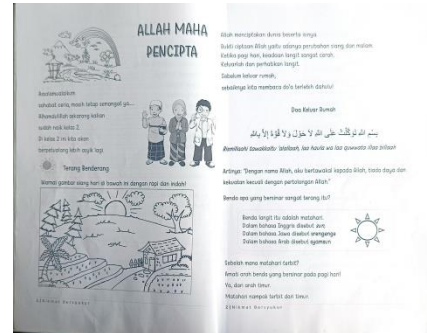 ALLAH MAHA
PENCIPTA
Assalamualaikum
sahabat ceria, masih tetap semangat ya...
Alhamdulillah sekarang kalian
sudah naik kelas 2.
Di kelas 2 ini kita akan
bertualang lebih asyik lagi.
Terang Benderang
Warnai gambar siang hari di bawah ini dengan rapi dan indah!
Nikmat Bersyukur
Allah menciptakan dunia beserta isinya.
Bukti ciptaan Allah yaitu adanya perubahan siang dan malam.
Ketika pagi hari, keadaan langit sangat cerah.
Keluarlah dan perhatikan langit.
Sebelum keluar rumah,
sebaiknya kita membaca do'a terlebih dahulu!
Doa Keluar Rumah
بِسْمِ اللهِ تَوَكَّلْتُ عَلَى اللهِ لَا حَوْلَ وَلَا قُوَّةَ إِلَّا بِاللهِ
Bismillaahi tawakkaltu 'alallaah, laa haula wa laa quwwata illaa billaah
Artinya: "Dengan nama Allah, aku bertawakal kepada Allah, tiada daya dan
kekuatan kecuali dengan pertolongan Allah."
Benda apa yang bersinar sangat terang itu?
Benda langit itu adalah matahari.
Dalam bahasa Inggris disebut sun;
Dalam bahasa Jawa disebut srengenge
Dalam bahasa Arab disebut syamsun
Sebelah mana matahari terbit?
Amati arah benda yang bersinar pada pagi hari!
Ya, dari arah timur.
Matahari nampak terbit dari timur.
Nikmat Bersyukur